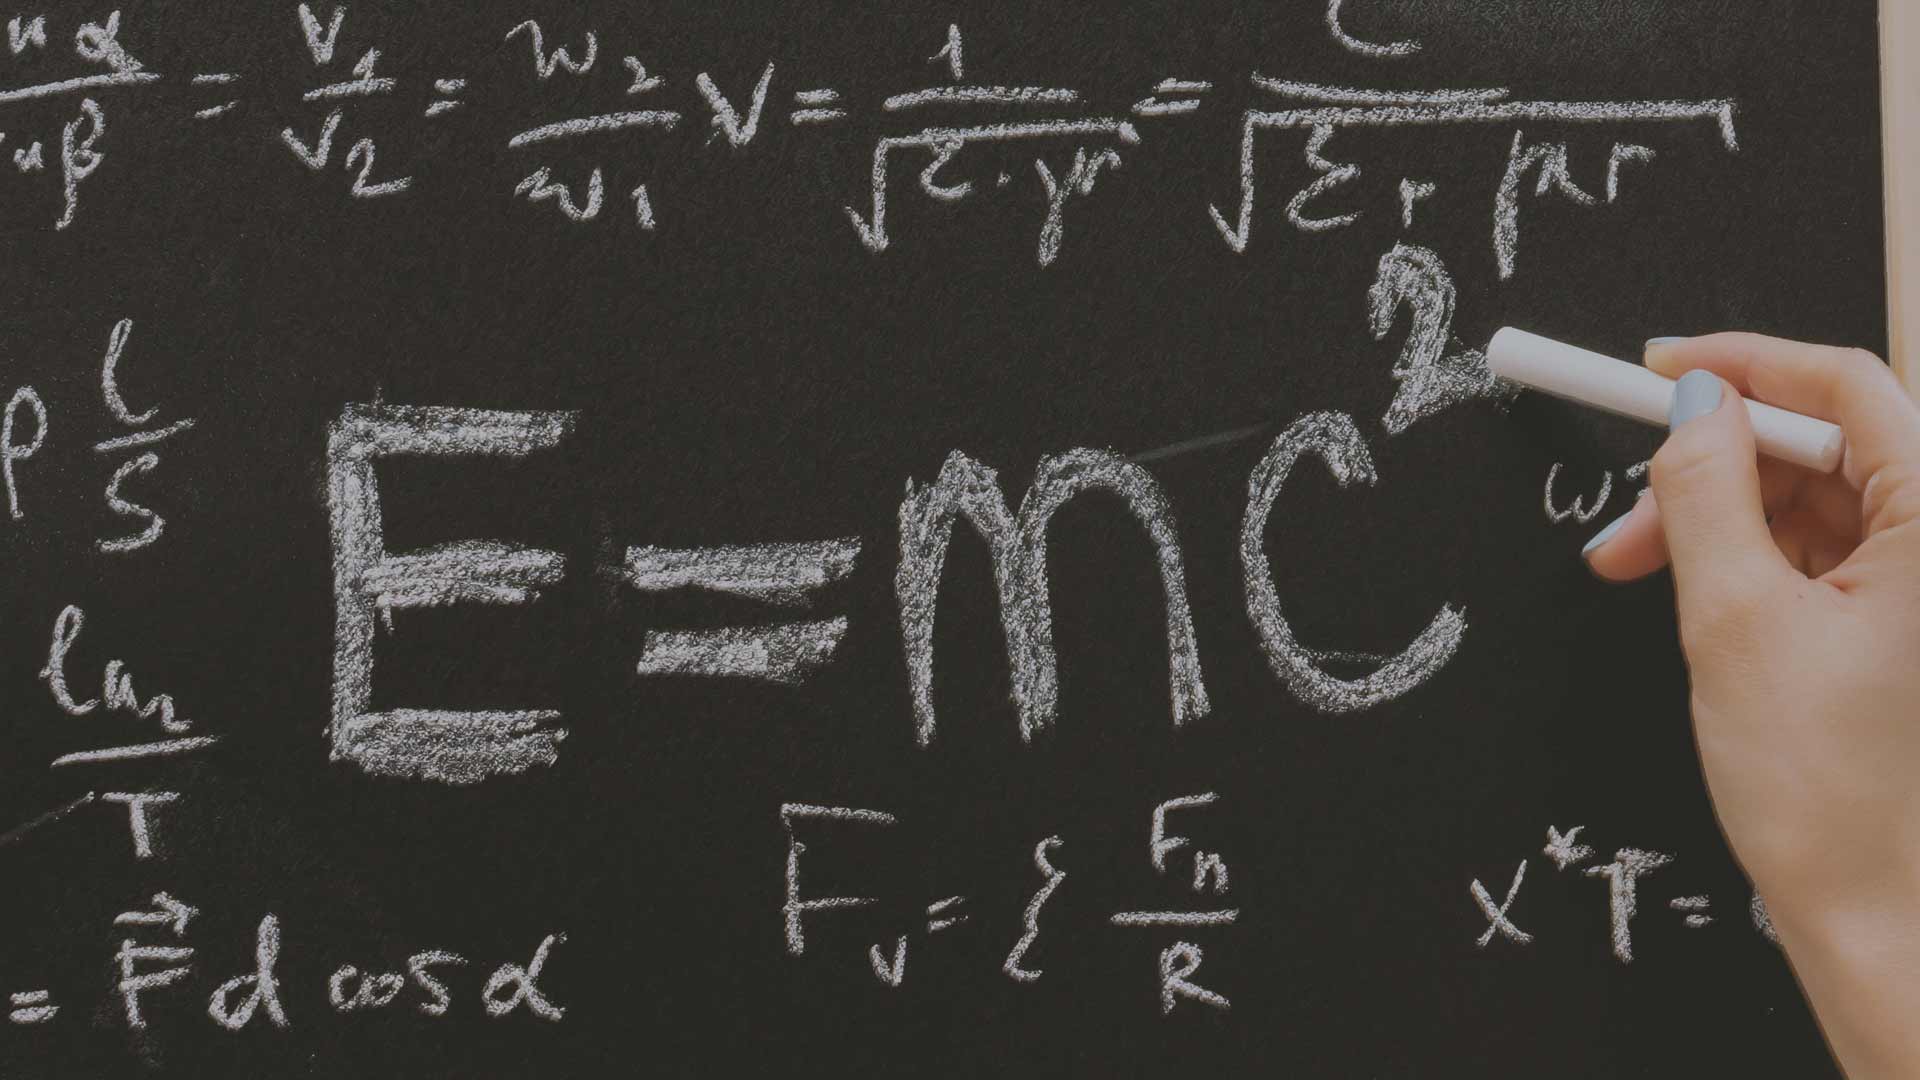 uα/uβ = V1/V2 = w2/w1 V = 1/√(ε·μ) = C/√(εr μr)
ρ l/S
E=mC²
ω
ln2/T
Fv = { Fn/R
x*T =
= F⃗ d cos α